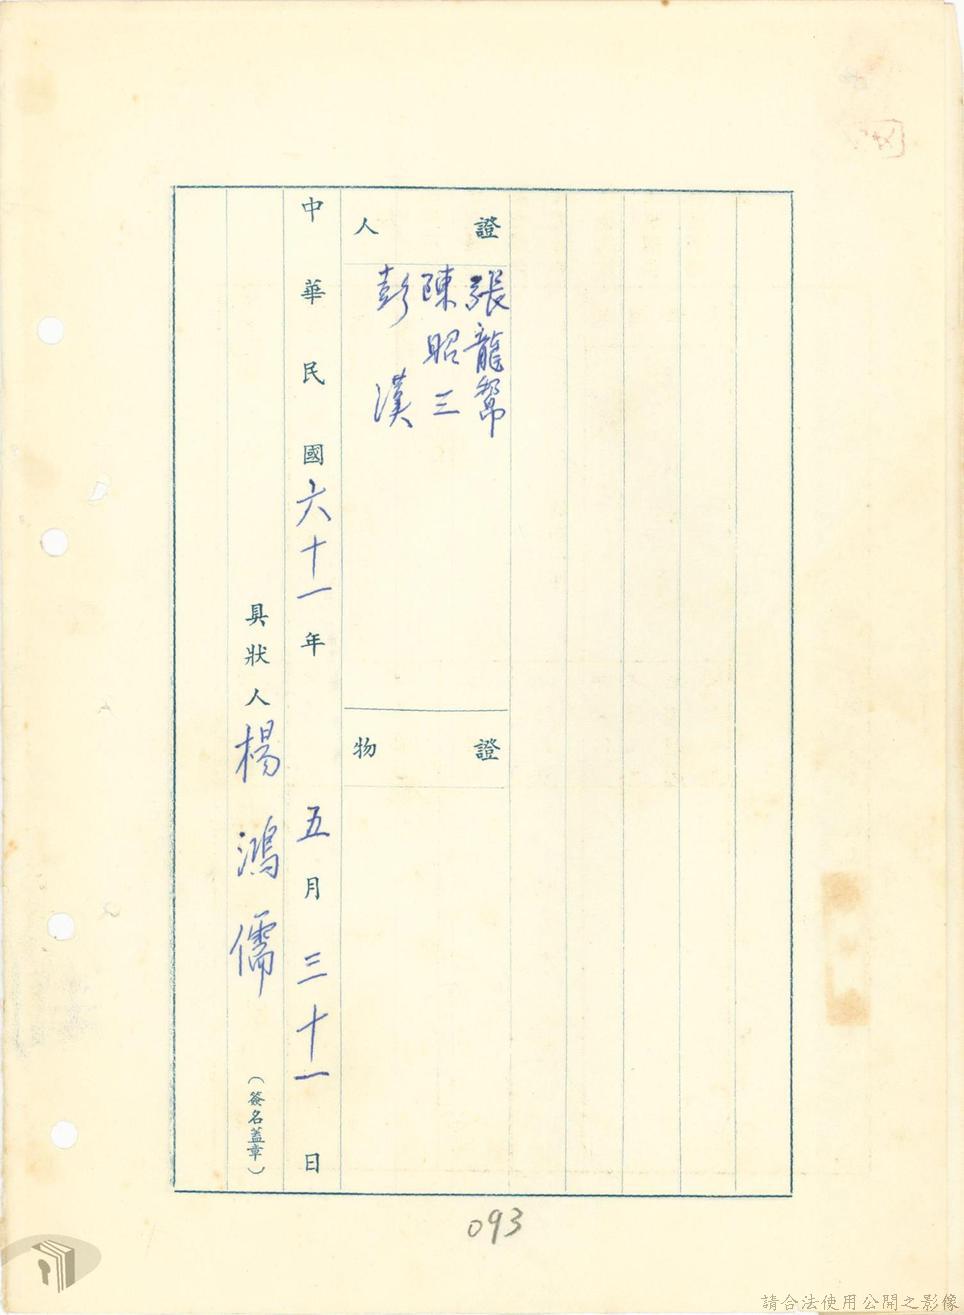 證人
張龍幫
陳昭三
彭漢
證物
中華民國六十一年五月三十一日
具狀人楊鴻儒(簽名蓋章)
093
請合法使用公開之影像